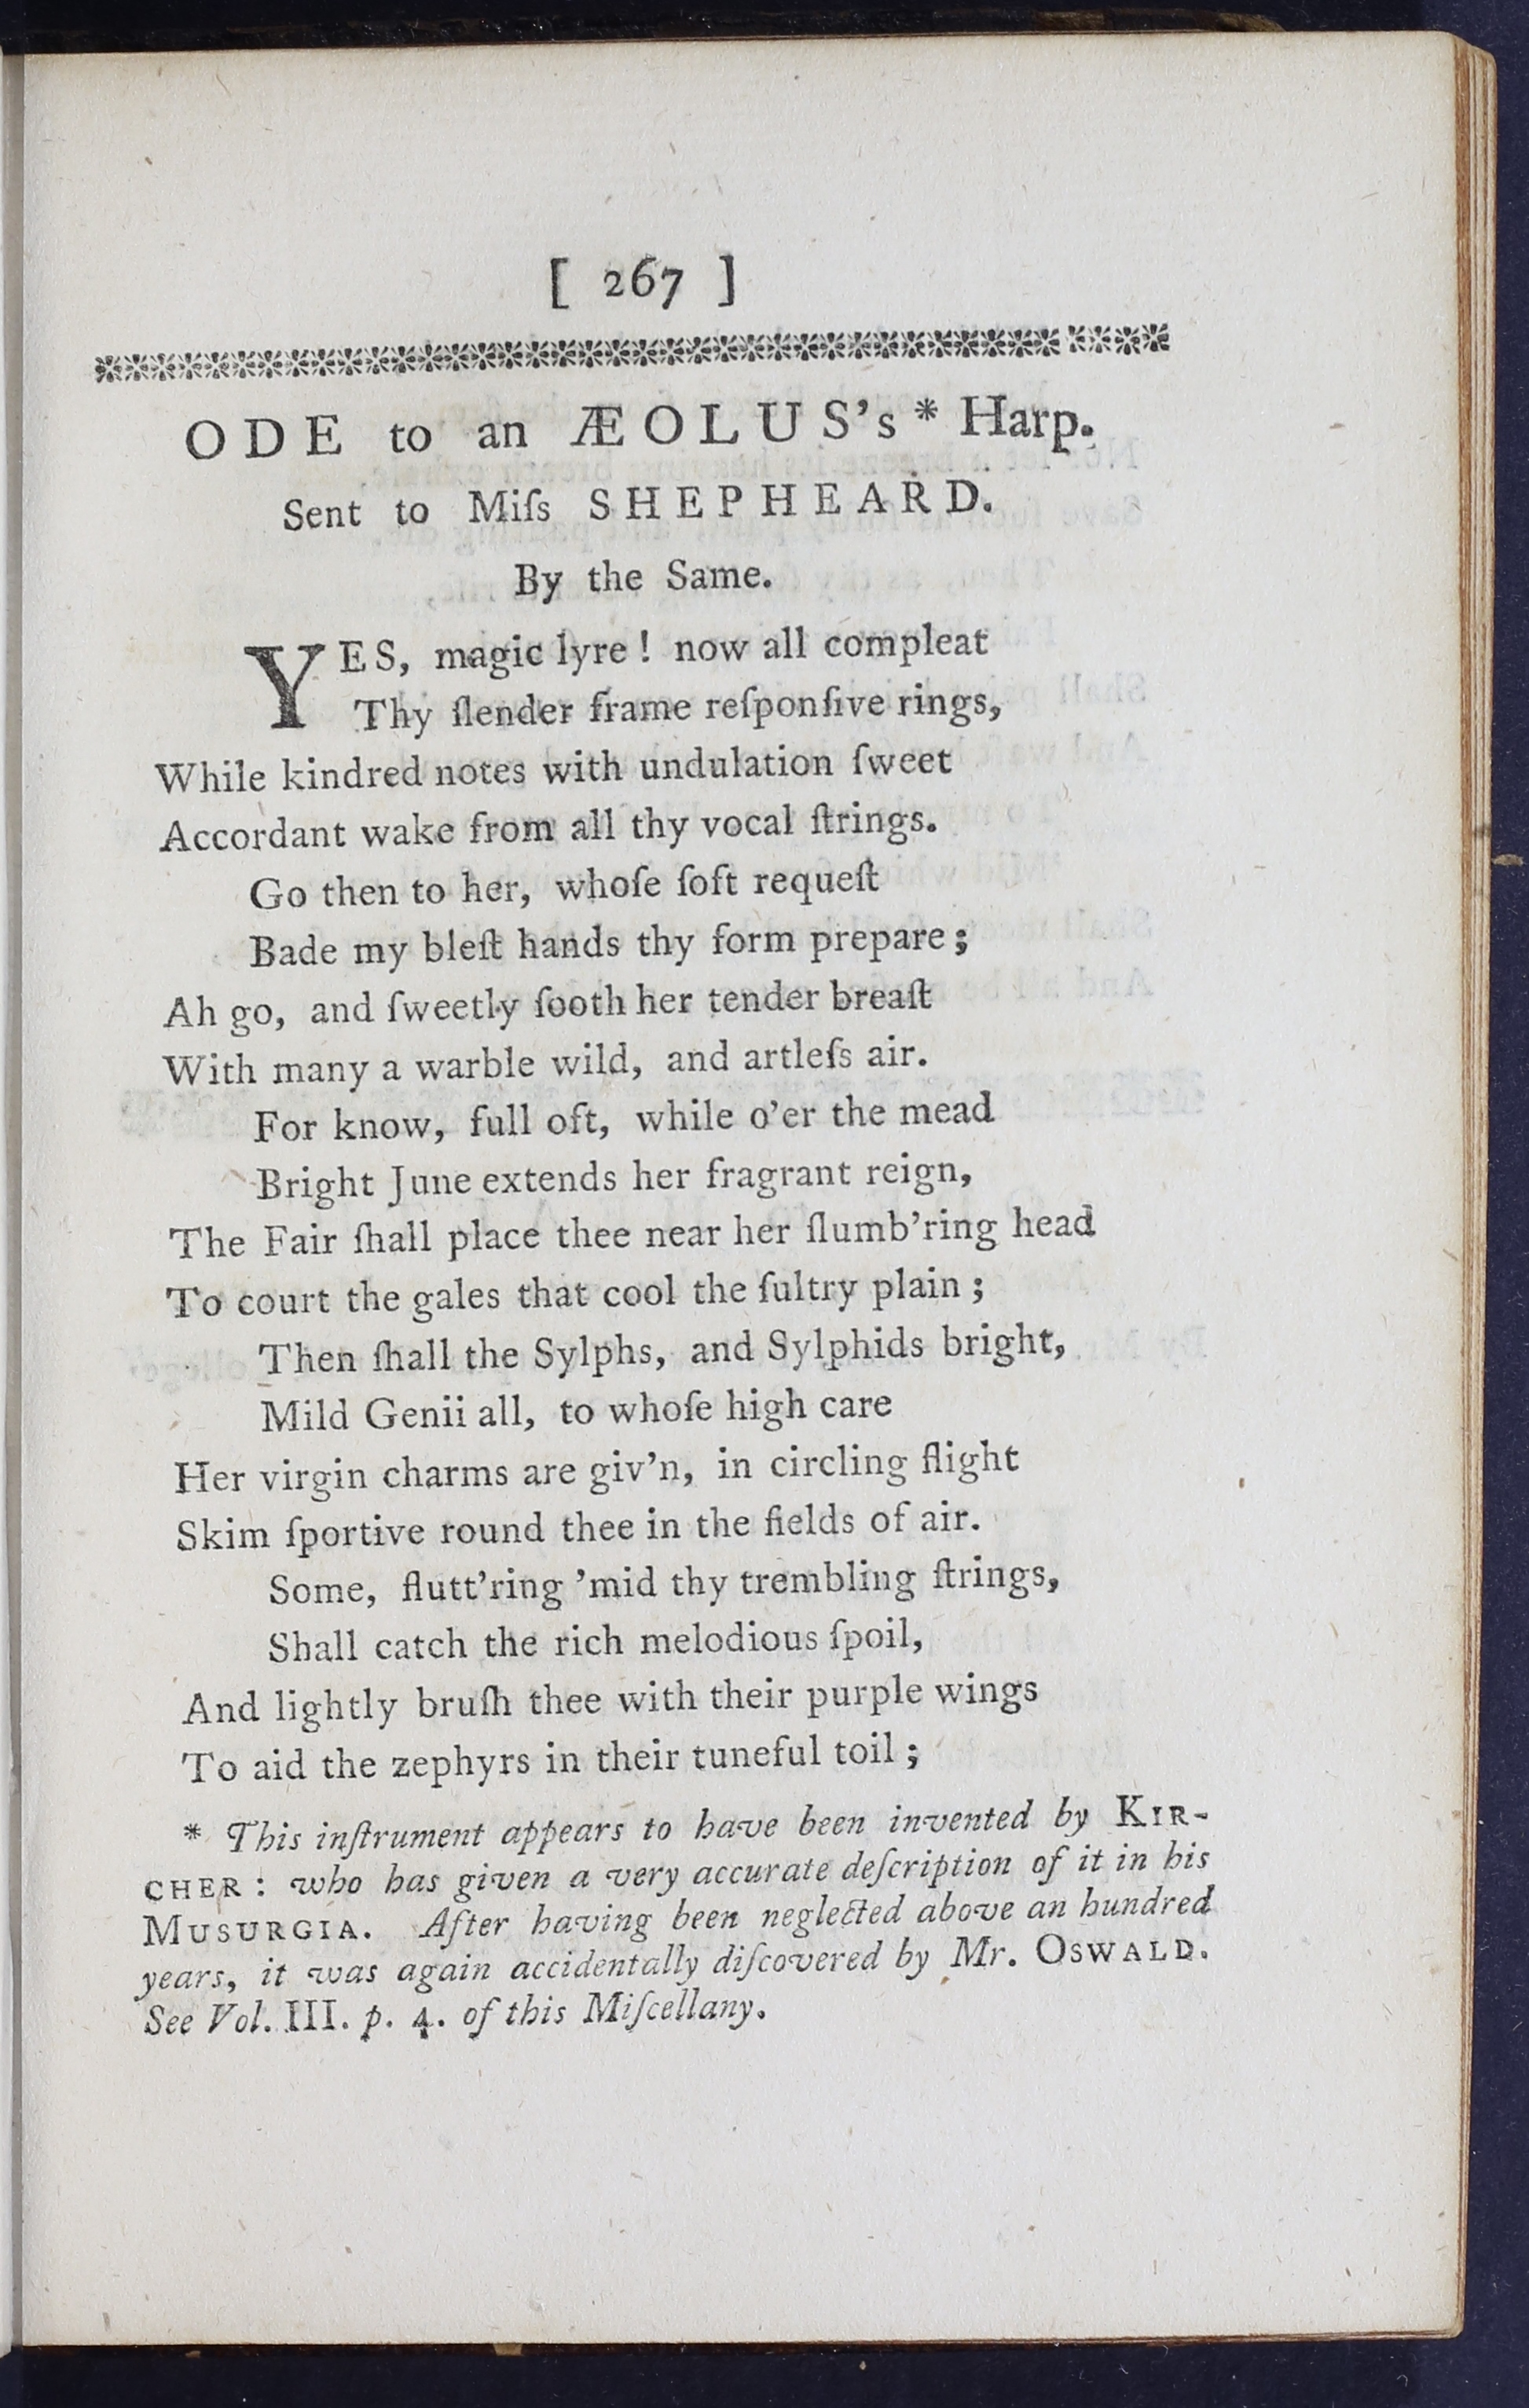 [ 267 ]
ODE to an ÆOLUS's * Harp.
Sent to Miſs SHEPHEARD.
By the Same.
YES, magic lyre ! now all compleat
Thy ſlender frame reſponſive rings,
While kindred notes with undulation ſweet
Accordant wake from all thy vocal ſtrings.
Go then to her, whoſe ſoft requeſt
Bade my bleſt hands thy form prepare ;
Ah go, and ſweetly ſooth her tender breaſt
With many a warble wild, and artleſs air.
For know, full oft, while o'er the mead
Bright June extends her fragrant reign,
The Fair ſhall place thee near her ſlumb'ring head
To court the gales that cool the ſultry plain ;
Then ſhall the Sylphs, and Sylphids bright,
Mild Genii all, to whoſe high care
Her virgin charms are giv'n, in circling flight
Skim ſportive round thee in the fields of air.
Some, flutt'ring 'mid thy trembling ſtrings,
Shall catch the rich melodious ſpoil,
And lightly bruſh thee with their purple wings
To aid the zephyrs in their tuneful toil ;
* This inſtrument appears to have been invented by KIR-
CHER : who has given a very accurate deſcription of it in his
MUSURGIA. After having been neglected above an hundred
years, it was again accidentally diſcovered by Mr. OSWALD.
See Vol. III. p. 4. of this Miſcellany.